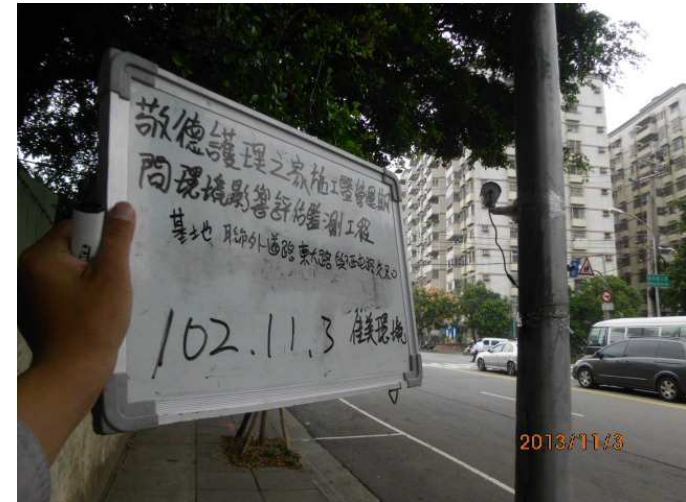 敬德護理之家施工暨營運期
間環境影響評估監測工程
基地聯外道路東大路
102.11.3 佳美環境
2013/11/3